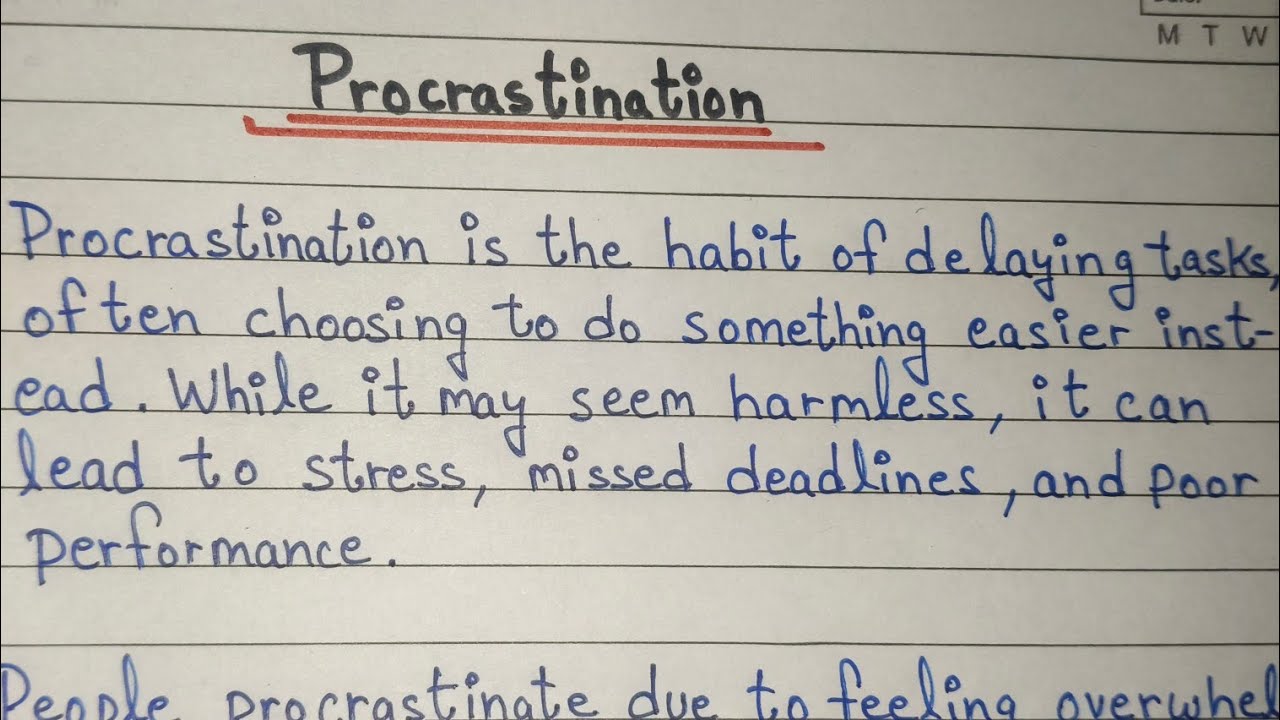 M T W
Procrastination
Procrastination is the habit of delaying tasks,
often choosing to do something easier inst-
ead. While it may seem harmless, it can
lead to stress, missed deadlines, and poor
performance.
People procrastinate due to feeling overwhel